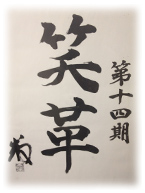 第十四期
笑革